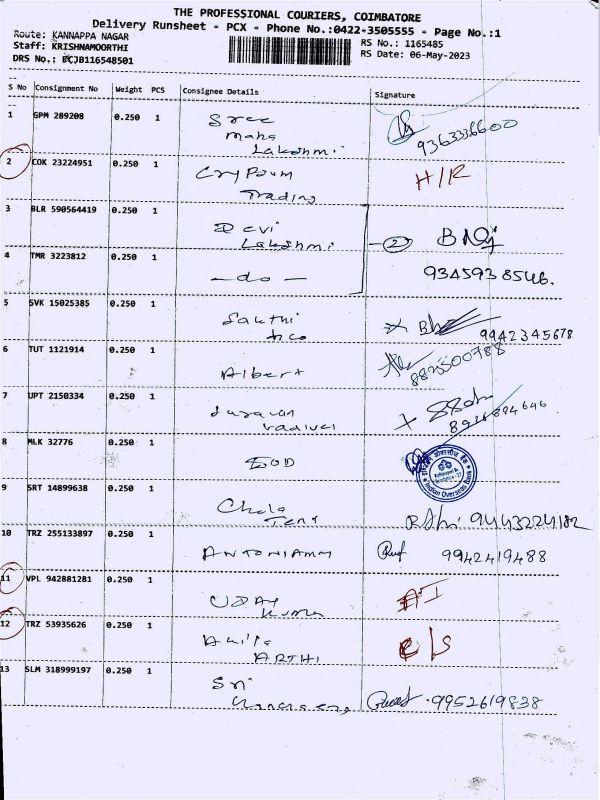 THE PROFESSIONAL COURIERS, COIMBATORE
Delivery Runsheet - PCX - Phone No.:0422-3505555 - Page No.:1
Route: KANNAPPA NAGAR
Staff: KRISHNAMOORTHI
DRS No.: BCJB116548501
RS No.: 1165485
RS Date: 06-May-2023
S No Consignment No Weight PCS Consignee Details Signature
1 GPM 289208 0.250 1 Sree
Maha
Lakshmi 9363336600
2 COK 23224951 0.250 1 H/R
Trading
3 BLR 590564419 0.250 1 Devi
Lakshmi (2)
4 TMR 3223812 0.250 1 -do- 9345938546.
5 SVK 15025385 0.250 1 Sakthi
9942345678
6 TUT 1121914 0.250 1 Albert 8825500788
7 UPT 2150334 0.250 1
vadivel
8 MLK 32776 0.250 1 Indian Overseas Bank
9 SRT 14899638 0.250 1 9443224182
10 TRZ 255133897 0.250 1 ANTONIAMM 9942419488
11 VPL 942881281 0.250 1 UDAY
Kumar
12 TRZ 53935626 0.250 1
ARTHI
13 SLM 318999197 0.250 1 Sri
9952619838